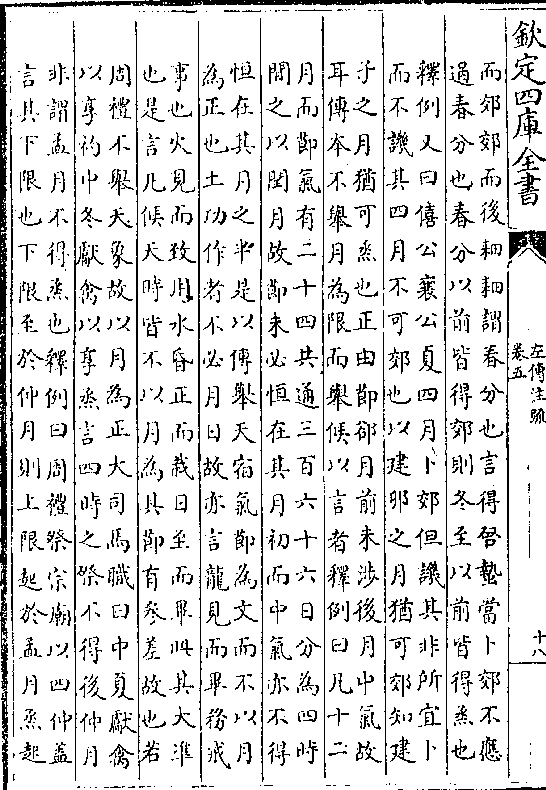 欽定四庫全書
左傳注䟽
卷五
十八
而郊郊而後耕耕謂春分也言得啓蟄當卜郊不應
過春分也春分以前皆得郊則冬至以前皆得烝也
釋例又曰僖公襄公夏四月卜郊但譏其非所宜卜
而不譏其四月不可郊也以建卯之月猶可郊知建
子之月猶可烝也正由節卻月前未涉後月中氣故
耳傳本不舉月為限而舉候以言者釋例曰凡十二
月而節氣有二十四共通三百六十六日分為四時
間之以閏月故節未必恒在其月初而中氣亦不得
恒在其月之半是以傳舉天宿氣節為文而不以月
為正也土功作者不必月日故亦言龍見而畢務戒
事也火見而致用水昏正而栽日至而畢此其大準
也是言凡候天時皆不以月為其節有參差故也若
周禮不舉天象故以月為正大司馬職曰中夏獻禽
以享礿中冬獻禽以享烝言四時之祭不得後仲月
非謂孟月不得烝也釋例曰周禮祭宗廟以四仲蓋
言其下限也下限至於仲月則上限起於孟月烝起